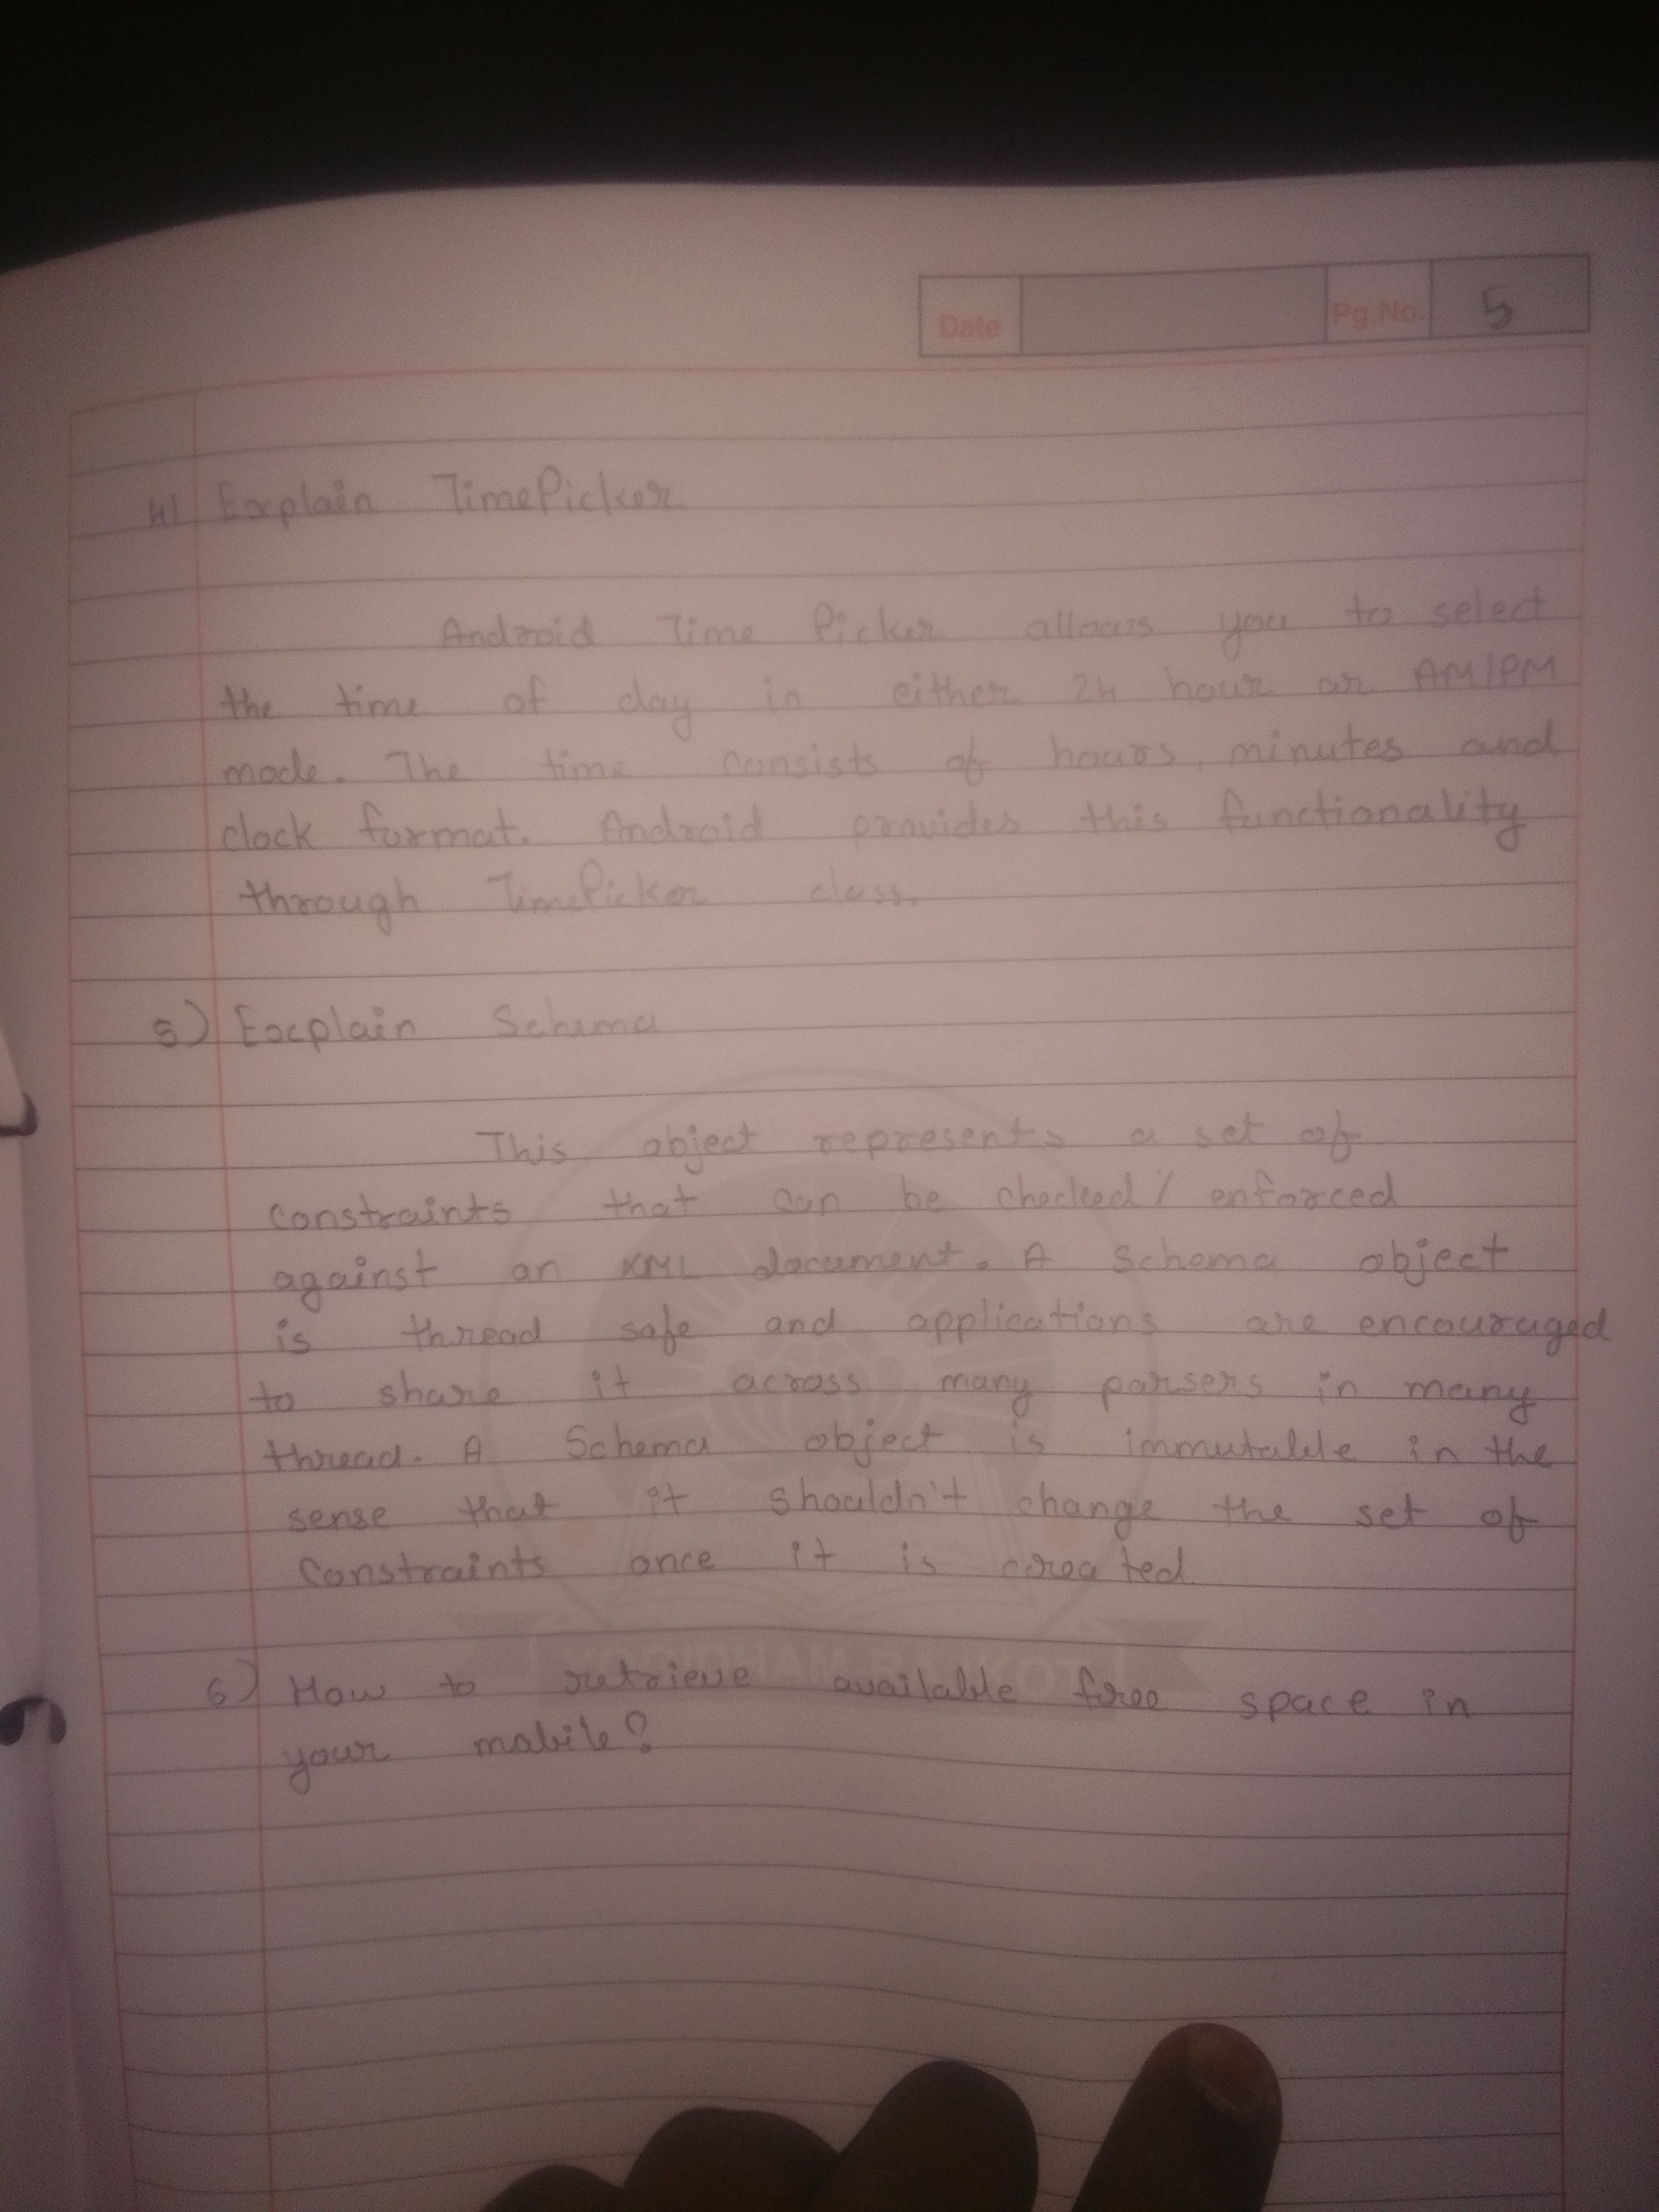 Date Pg.No. 5
4) Explain TimePicker
Android Time Picker allows you to select
the time of day in either 24 hour or AM/PM
mode. The time consists of hours, minutes and
clock format. Android provides this functionality
through TimePicker class.
5) Explain Schema
This object represents a set of
constraints that can be checked / enforced
against an XML document. A Schema object
is thread safe and applications are encouraged
to share it across many parsers in many
thread. A Schema object is immutable in the
sense that it shouldn't change the set of
Constraints once it is created
6) How to retrieve available free space in
your mobile?